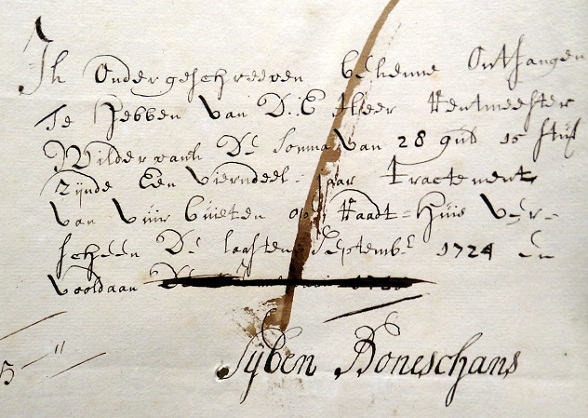 Ik Ondergeschreeven bekenne Ontfangen
Te Hebben van D. E Heer Rentmeester
Wildervank De Somma van 28 gul 15 stuf
Zijnde Een vierndeel= jaar Tractement
van vuir buieten op Raadt=Huis ver=
scheen De laasten Septembr 1724 en
vooldaan
Sijben Boneschans